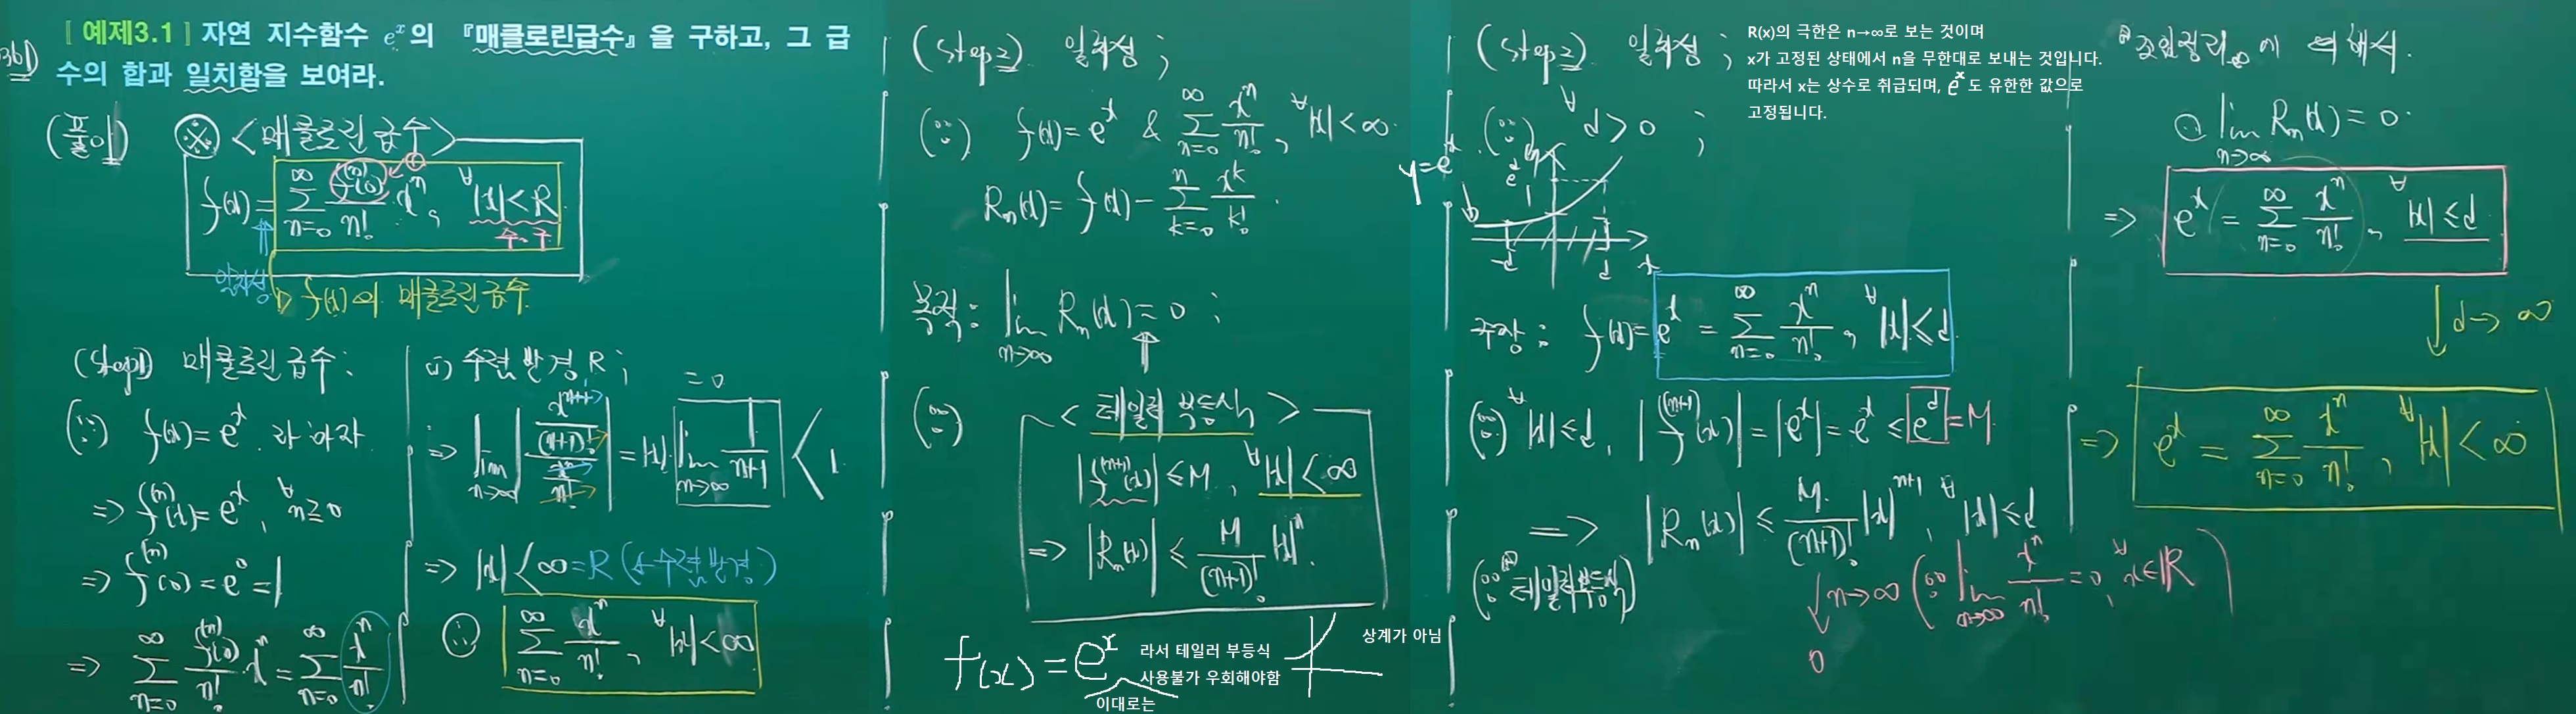 [ 예제3.1 ] 자연 지수함수 e^x의 『매클로린급수』을 구하고, 그 급
수의 합과 일치함을 보여라.
(풀이) ※ <매클로린 급수>
f(x) = Σ_{n=0}^{∞} f^{(n)}(0)/n! x^n, ∀|x| < R
수.구
일치성
f(x)의 매클로린급수
(Step1) 매클로린급수 :
(∵) f(x) = e^x 라 하자
=> f^{(n)}(x) = e^x, ∀n ≥ 0
=> f^{(n)}(0) = e^0 = 1
=> Σ_{n=0}^{∞} f^{(n)}(0)/n! x^n = Σ_{n=0}^{∞} x^n/n!
ii) 수렴반경 R ;
=> lim_{n→∞} | (x^{n+1}/(n+1)!) / (x^n/n!) | = |x| lim_{n→∞} 1/(n+1) < 1
= 0
=> |x| < ∞ = R (수렴반경)
∴ Σ_{n=0}^{∞} x^n/n!, ∀|x| < ∞
(Step2) 일치성 ;
(∵) f(x) = e^x & Σ_{n=0}^{∞} x^n/n!, ∀|x| < ∞
R_n(x) = f(x) - Σ_{k=0}^{n} x^k/k!
목적 : lim_{n→∞} R_n(x) = 0 ;
(∵) < 테일러 부등식 >
|f^{(n+1)}(x)| ≤ M, ∀|x| < ∞
=> |R_n(x)| ≤ M/(n+1)! |x|^n.
f(x) = e^x
라서 테일러 부등식
사용불가 우회해야함
이대로는
상계가 아님
(Step2) 일치성 ;
R(x)의 극한은 n→∞로 보는 것이며
x가 고정된 상태에서 n을 무한대로 보내는 것입니다.
따라서 x는 상수로 취급되며, e^x 도 유한한 값으로
고정됩니다.
(∵) ∀d > 0 ;
y = e^x
e^d
1
-d d x
주장 : f(x) = e^x = Σ_{n=0}^{∞} x^n/n!, ∀|x| ≤ d
(∵) ∀|x| ≤ d, |f^{(n+1)}(x)| = |e^x| = e^x ≤ e^d = M
=> |R_n(x)| ≤ M/(n+1)! |x|^{n+1}, ∀|x| ≤ d
(∵ 테일러부등식)
↓ n→∞ (∵ lim_{n→∞} x^n/n! = 0, ∀x∈ℝ)
0
조임정리 에 의해서.
∴ lim_{n→∞} R_n(x) = 0.
=> e^x = Σ_{n=0}^{∞} x^n/n!, ∀|x| ≤ d
↓ d → ∞
=> e^x = Σ_{n=0}^{∞} x^n/n!, ∀|x| < ∞